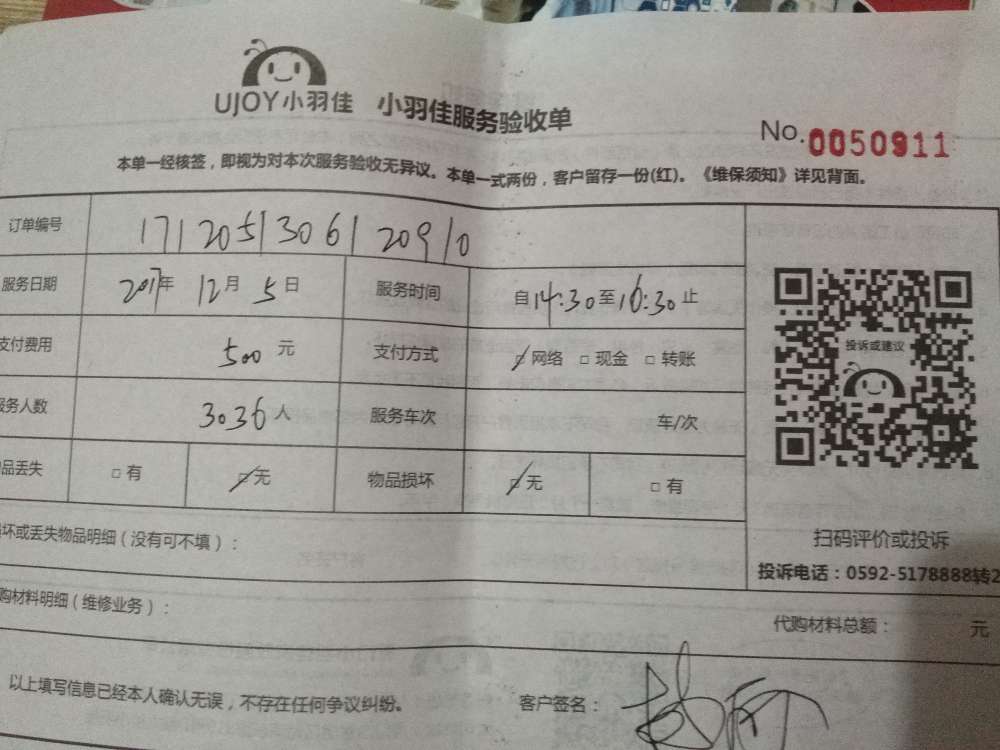 UJOY小羽佳 小羽佳服务验收单
No.0050911
本单一经核签，即视为对本次服务验收无异议。本单一式两份，客户留存一份(红)。《维保须知》详见背面。
订单编号 17120513061 20910
服务日期 2017年 12月 5日 服务时间 自14:30至16:30止
支付费用 500 元 支付方式 ☑网络 □现金 □转账
服务人数 3036人 服务车次 车/次
品丢失 □有 ☑无 物品损坏 ☑无 □有
投诉或建议
扫码评价或投诉
投诉电话：0592-5178888转2
坏或丢失物品明细（没有可不填）：
购材料明细（维修业务）： 代购材料总额： 元
以上填写信息已经本人确认无误，不存在任何争议纠纷。 客户签名：